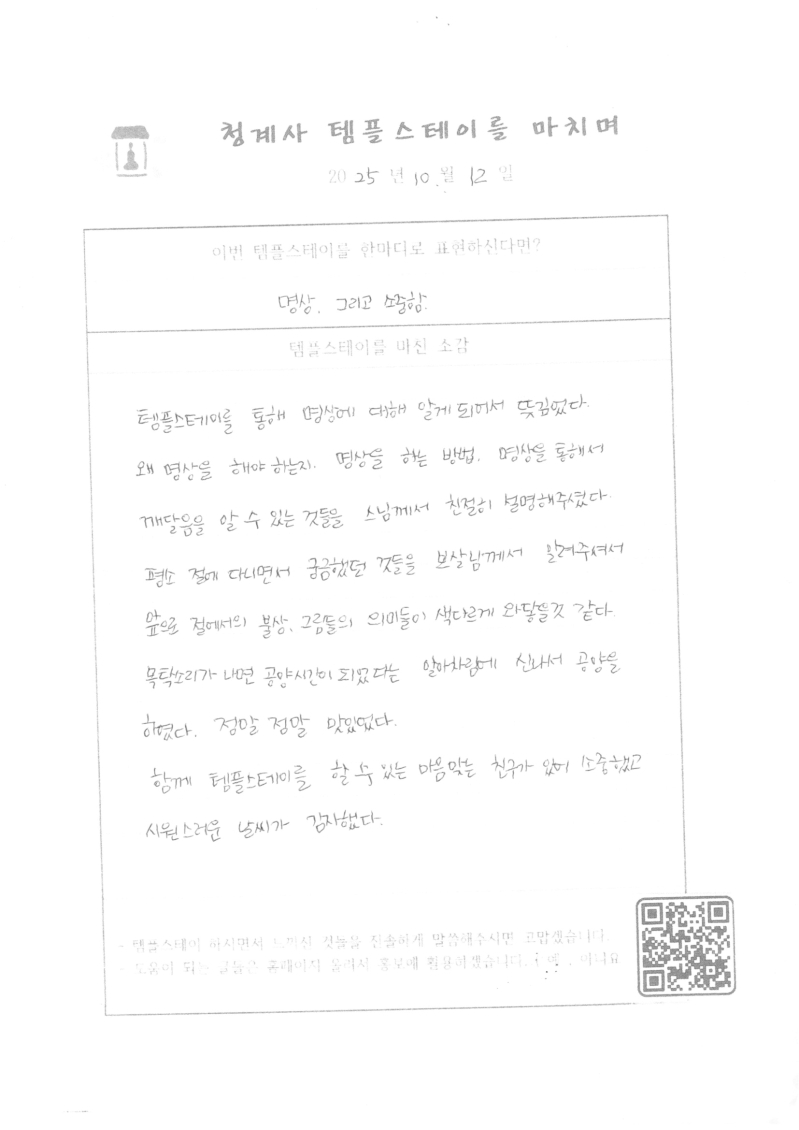 청계사 템플스테이를 마치며
2025년 10월 12일
이번 템플스테이를 한마디로 표현하신다면?
명상, 그리고 소중함.
템플스테이를 마친 소감
템플스테이를 통해 명상에 대해 알게 되어서 뜻김었다.
왜 명상을 해야 하는지. 명상을 하는 방법, 명상을 통해서
깨달음을 알 수 있는 것들을 스님께서 친절히 설명해주셨다.
평소 절에 다니면서 궁금했던 것들을 보살님께서 알려주셔서
앞으로 절에서의 불상, 그림들의 의미들이 색다르게 와닿을것 같다.
목탁소리가 나면 공양시간이 되었다는 알아차림에 신나서 공양을
하였다. 정말 정말 맛있었다.
함께 템플스테이를 할 수 있는 마음맞는 친구가 있어 소중했고
시원스러운 날씨가 감사했다.
- 템플스테이 하시면서 느끼신 것들을 진솔하게 말씀해주시면 고맙겠습니다.
- 도움이 되는 글들은 홈페이지 올려서 홍보에 활용하겠습니다. 예 , 아니요